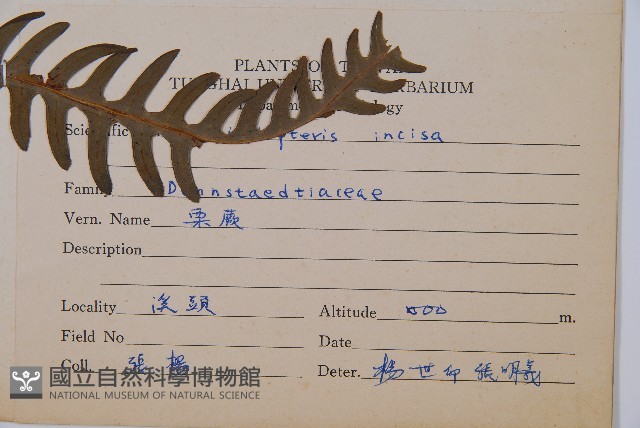 PLANTS OF T
TU HAI UN HERBARIUM
Scientific pteris incisa
Family Dennstaedtiaceae
Vern. Name 栗蕨
Description
Locality 溪頭 Altitude m.
Field No Date
Coll. 張 楊 Deter. 楊世仰 張明義
國立自然科學博物館
NATIONAL MUSEUM OF NATURAL SCIENCE